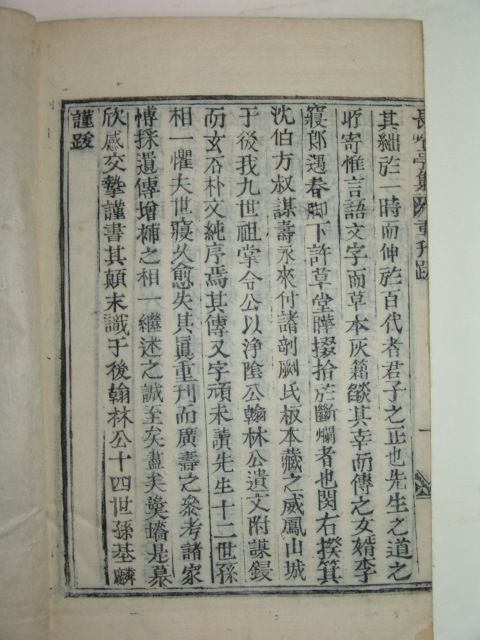 長吟亭集 重刊跋
其絀於一時而伸於百代者君子之正也先生之道之
所寄惟言語文字而草本灰籍燄其幸而傳之女婿李
寢郞遇春脚下許草堂曄掇拾於斷爛者也閔右揆箕
沈伯方叔謀壽永來付諸剞劂氏板本藏之威鳳山城
于後我九世祖掌令公以淨陰公翰林公遺文附謀鋟
而玄石朴文純序焉其傳又字頑未讀先生十二世孫
相一懼夫世寢久愈失其眞重刊而廣壽之叅考諸家
博採遺傳增補之相一繼述之誠至矣盡矣羹墻是慕
欣感交摯謹書其顚末識于後翰林公十四世孫基麟
謹跋